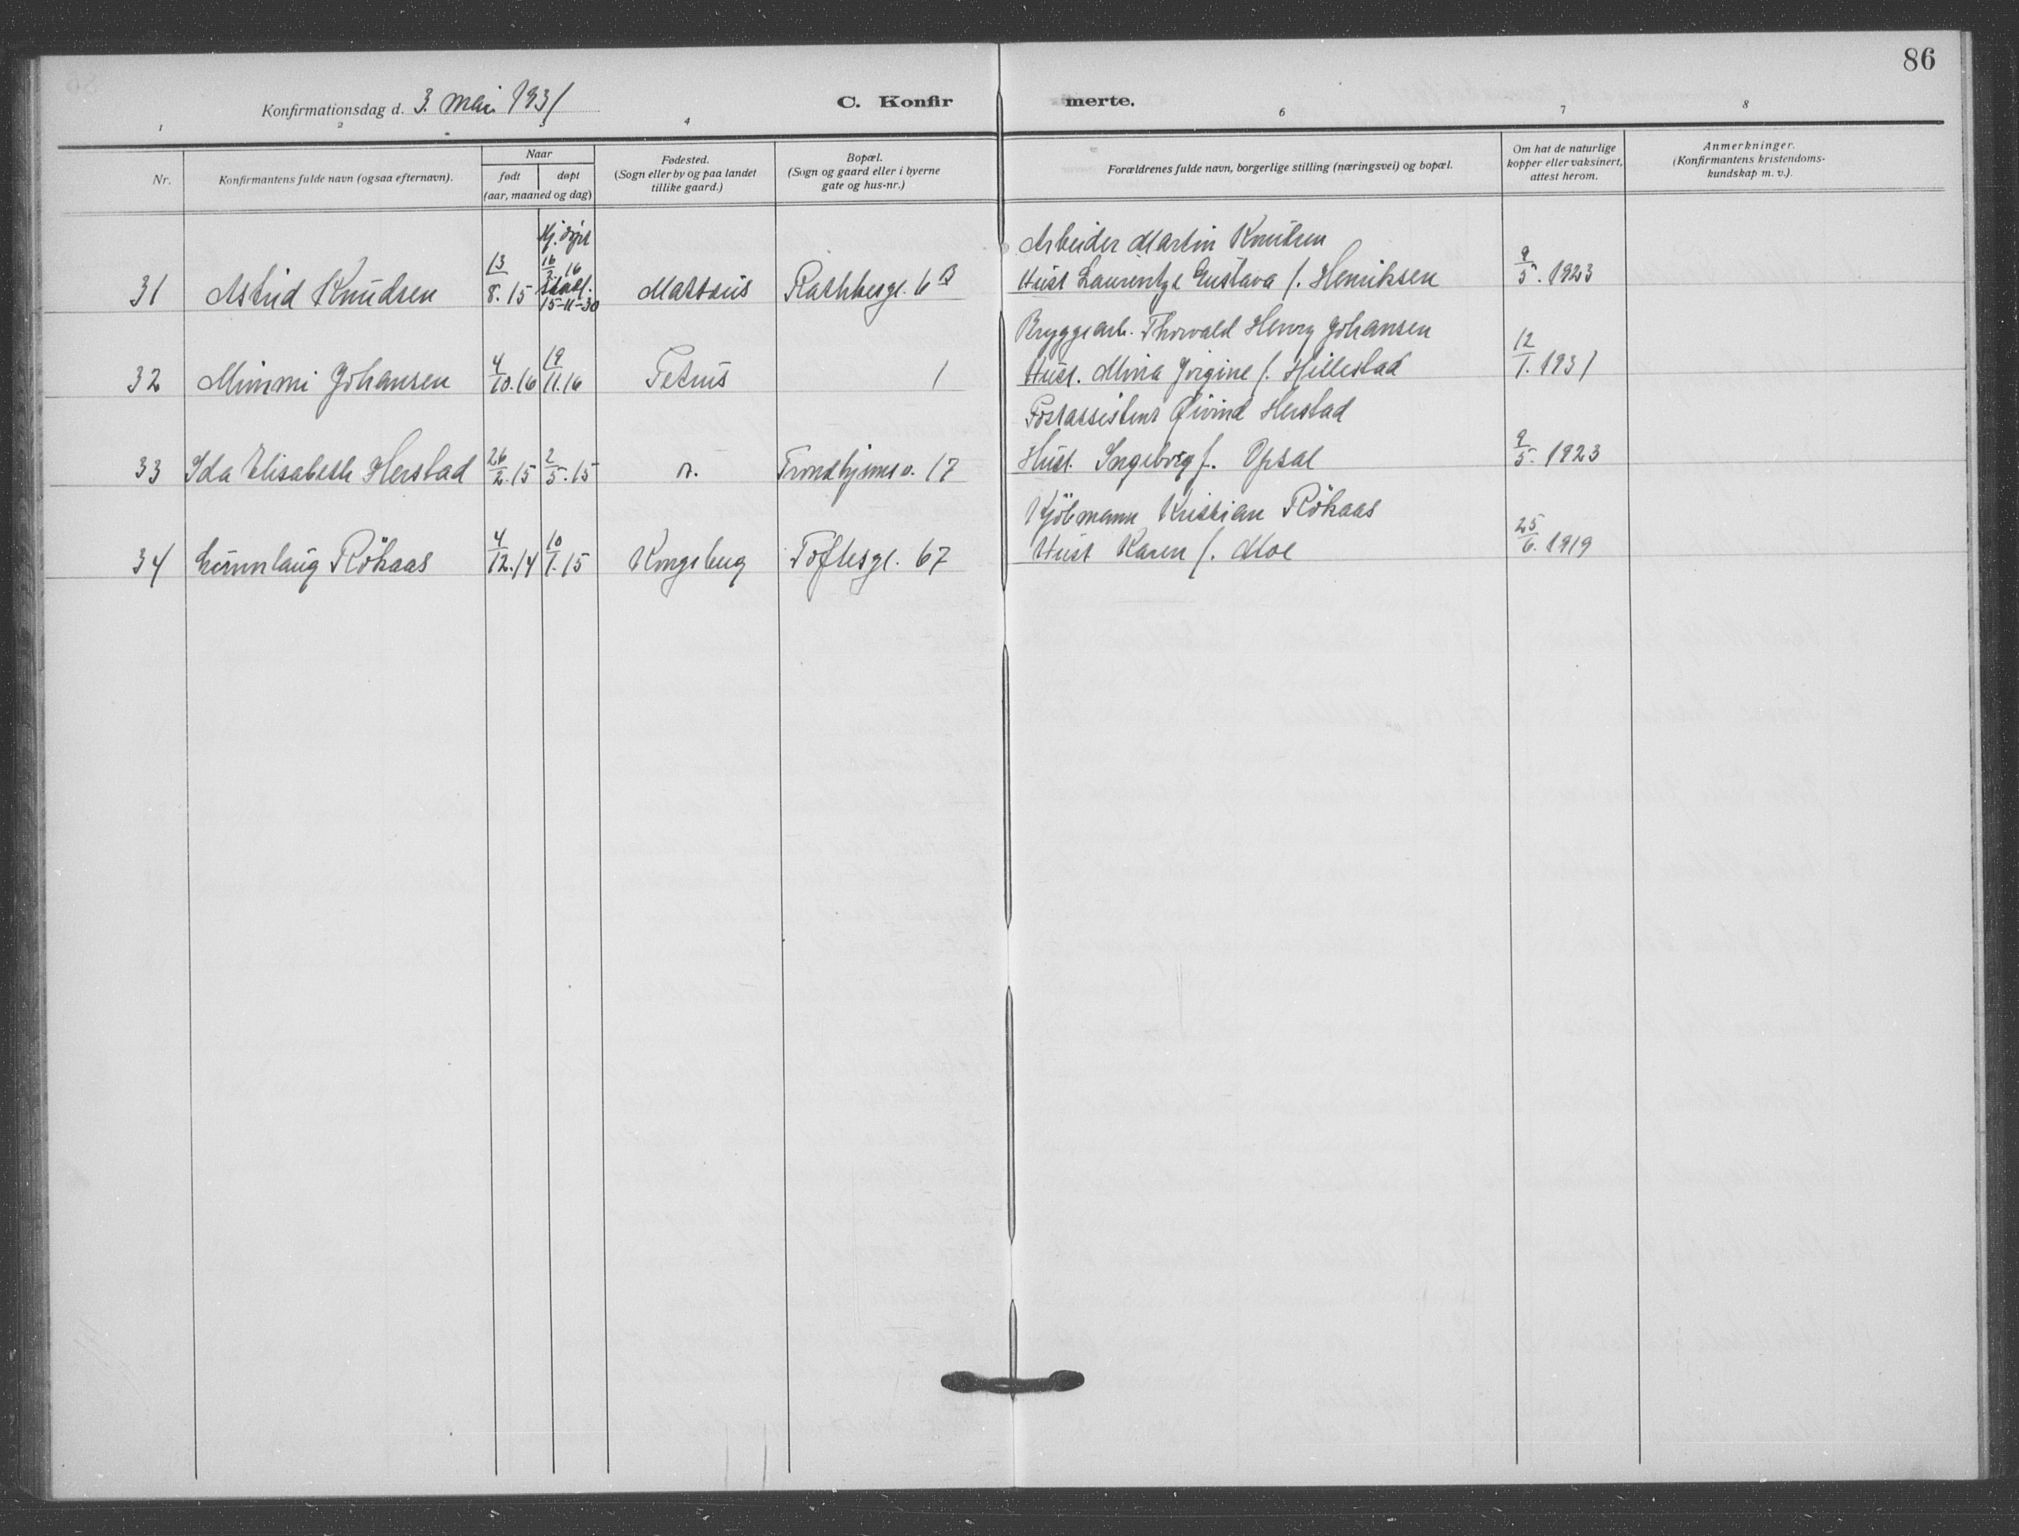 86
Konfirmationsdag d. 3. mai 1931
C. Konfir merte.
1 2 3 4 6 7 8
Nr.
Konfirmantens fulde navn (ogsaa efternavn).
Naar
født
døpt
(aar, maaned og dag)
Fødested.
(Sogn eller by og paa landet
tillike gaard.)
Bopæl.
(Sogn og gaard eller i byerne
gate og hus-nr.)
Forældrenes fulde navn, borgerlige stilling (næringsvei) og bopæl.
Om hat de naturlige
kopper eller vaksinert,
attest herom.
Anmerkninger.
(Konfirmantens kristendoms-
kundskap m. v.).
Hj. døpt
Arbeider Martin Knutsen
31 Astrid Knudsen 13/8. 15 16/2. 16 15-11-30 Matteus Rathkesgt. 6 B Hust Laurentze Gustava f. Henriksen 9/5. 1923
Bryggearb. Thorvald Henry Johansen
32 Mimmi Johansen 4/10. 16 19/11. 16 Petrus 1 Hust. Mina Jørgine f. Hillestad 12/1. 1931
Postassistent Øivind Herstad
33 Ida Elisabeth Herstad 26/2. 15 2/5. 15 Trondhjems v. 17 Hust. Ingeborg f. Opsal 9/5. 1923
Kjöbmann Kristian Röhaas
34 Gunnlaug Röhaas 4/12. 14 10/1. 15 Kongsberg Toftesgt. 67 Hust Karen f. Moe 25/6. 1919